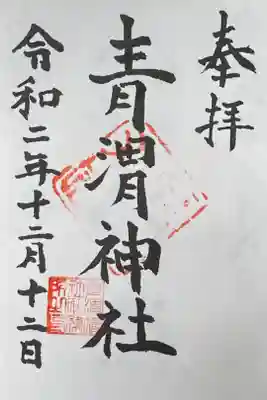 奉拝
青渭神社
令和二年十二月十二日